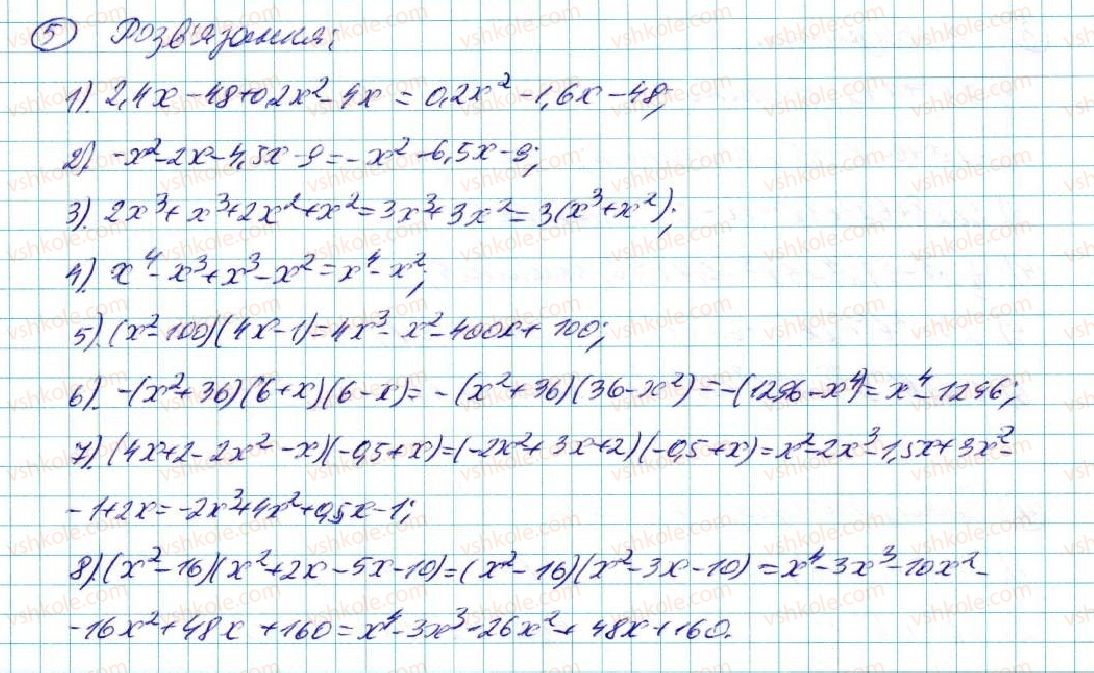 ⑤ Розв'язання:
1). 2,4x - 48 + 0,2x² - 4x = 0,2x² - 1,6x - 48;
2). -x² - 2x - 4,5x - 9 = -x² - 6,5x - 9;
3). 2x³ + x³ + 2x² + x² = 3x³ + 3x² = 3(x³ + x²);
4). x⁴ - x³ + x³ - x² = x⁴ - x²;
5). (x² - 100)(4x - 1) = 4x³ - x² - 400x + 100;
6). -(x² + 36)(6 + x)(6 - x) = -(x² + 36)(36 - x²) = -(1296 - x⁴) = x⁴ - 1296;
7). (4x + 2 - 2x² - x)(-0,5 + x) = (-2x² + 3x + 2)(-0,5 + x) = x² - 2x³ - 1,5x + 3x² -
- 1 + 2x = -2x³ + 4x² + 0,5x - 1;
8). (x² - 16)(x² + 2x - 5x - 10) = (x² - 16)(x² - 3x - 10) = x⁴ - 3x³ - 10x² -
- 16x² + 48x + 160 = x⁴ - 3x³ - 26x² + 48x + 160.